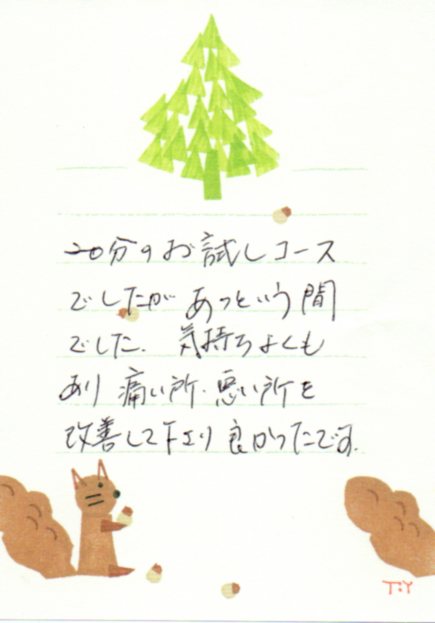 20分のお試しコース
でしたが あっという間
でした. 気持ちよくも
あり 痛い所.悪い所を
改善して下さり 良かったです.
T.Y